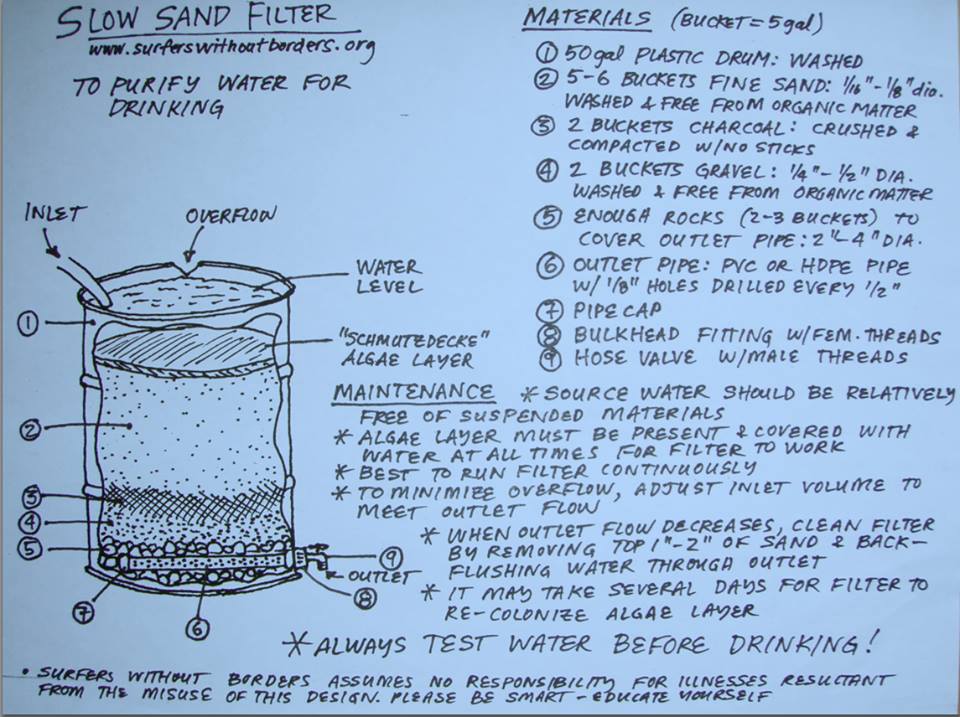 SLOW SAND FILTER
www.surferswithoutborders.org
TO PURIFY WATER FOR
DRINKING
MATERIALS (BUCKET = 5 gal)
① 50gal PLASTIC DRUM: WASHED
② 5-6 BUCKETS FINE SAND: 1/16" - 1/8" dia.
WASHED & FREE FROM ORGANIC MATTER
③ 2 BUCKETS CHARCOAL: CRUSHED &
COMPACTED W/NO STICKS
④ 2 BUCKETS GRAVEL: 1/4" - 1/2" DIA.
WASHED & FREE FROM ORGANIC MATTER
⑤ ENOUGH ROCKS (2-3 BUCKETS) TO
COVER OUTLET PIPE: 2" - 4" DIA.
⑥ OUTLET PIPE: PVC OR HDPE PIPE
W/ 1/8" HOLES DRILLED EVERY 1/2"
⑦ PIPE CAP
⑧ BULKHEAD FITTING W/FEM. THREADS
⑨ HOSE VALVE W/MALE THREADS
INLET
OVERFLOW
WATER
LEVEL
①
"SCHMUTEDECKE"
ALGAE LAYER
②
③
④
⑤
⑨
OUTLET
⑧
⑦
⑥
MAINTENANCE * SOURCE WATER SHOULD BE RELATIVELY
FREE OF SUSPENDED MATERIALS
* ALGAE LAYER MUST BE PRESENT & COVERED WITH
WATER AT ALL TIMES FOR FILTER TO WORK
* BEST TO RUN FILTER CONTINUOUSLY
* TO MINIMIZE OVERFLOW, ADJUST INLET VOLUME TO
MEET OUTLET FLOW
* WHEN OUTLET FLOW DECREASES, CLEAN FILTER
BY REMOVING TOP 1"-2" OF SAND & BACK-
FLUSHING WATER THROUGH OUTLET
* IT MAY TAKE SEVERAL DAYS FOR FILTER TO
RE-COLONIZE ALGAE LAYER
* ALWAYS TEST WATER BEFORE DRINKING!
• SURFERS WITHOUT BORDERS ASSUMES NO RESPONSIBILITY FOR ILLNESSES RESULTANT
FROM THE MISUSE OF THIS DESIGN. PLEASE BE SMART - EDUCATE YOURSELF